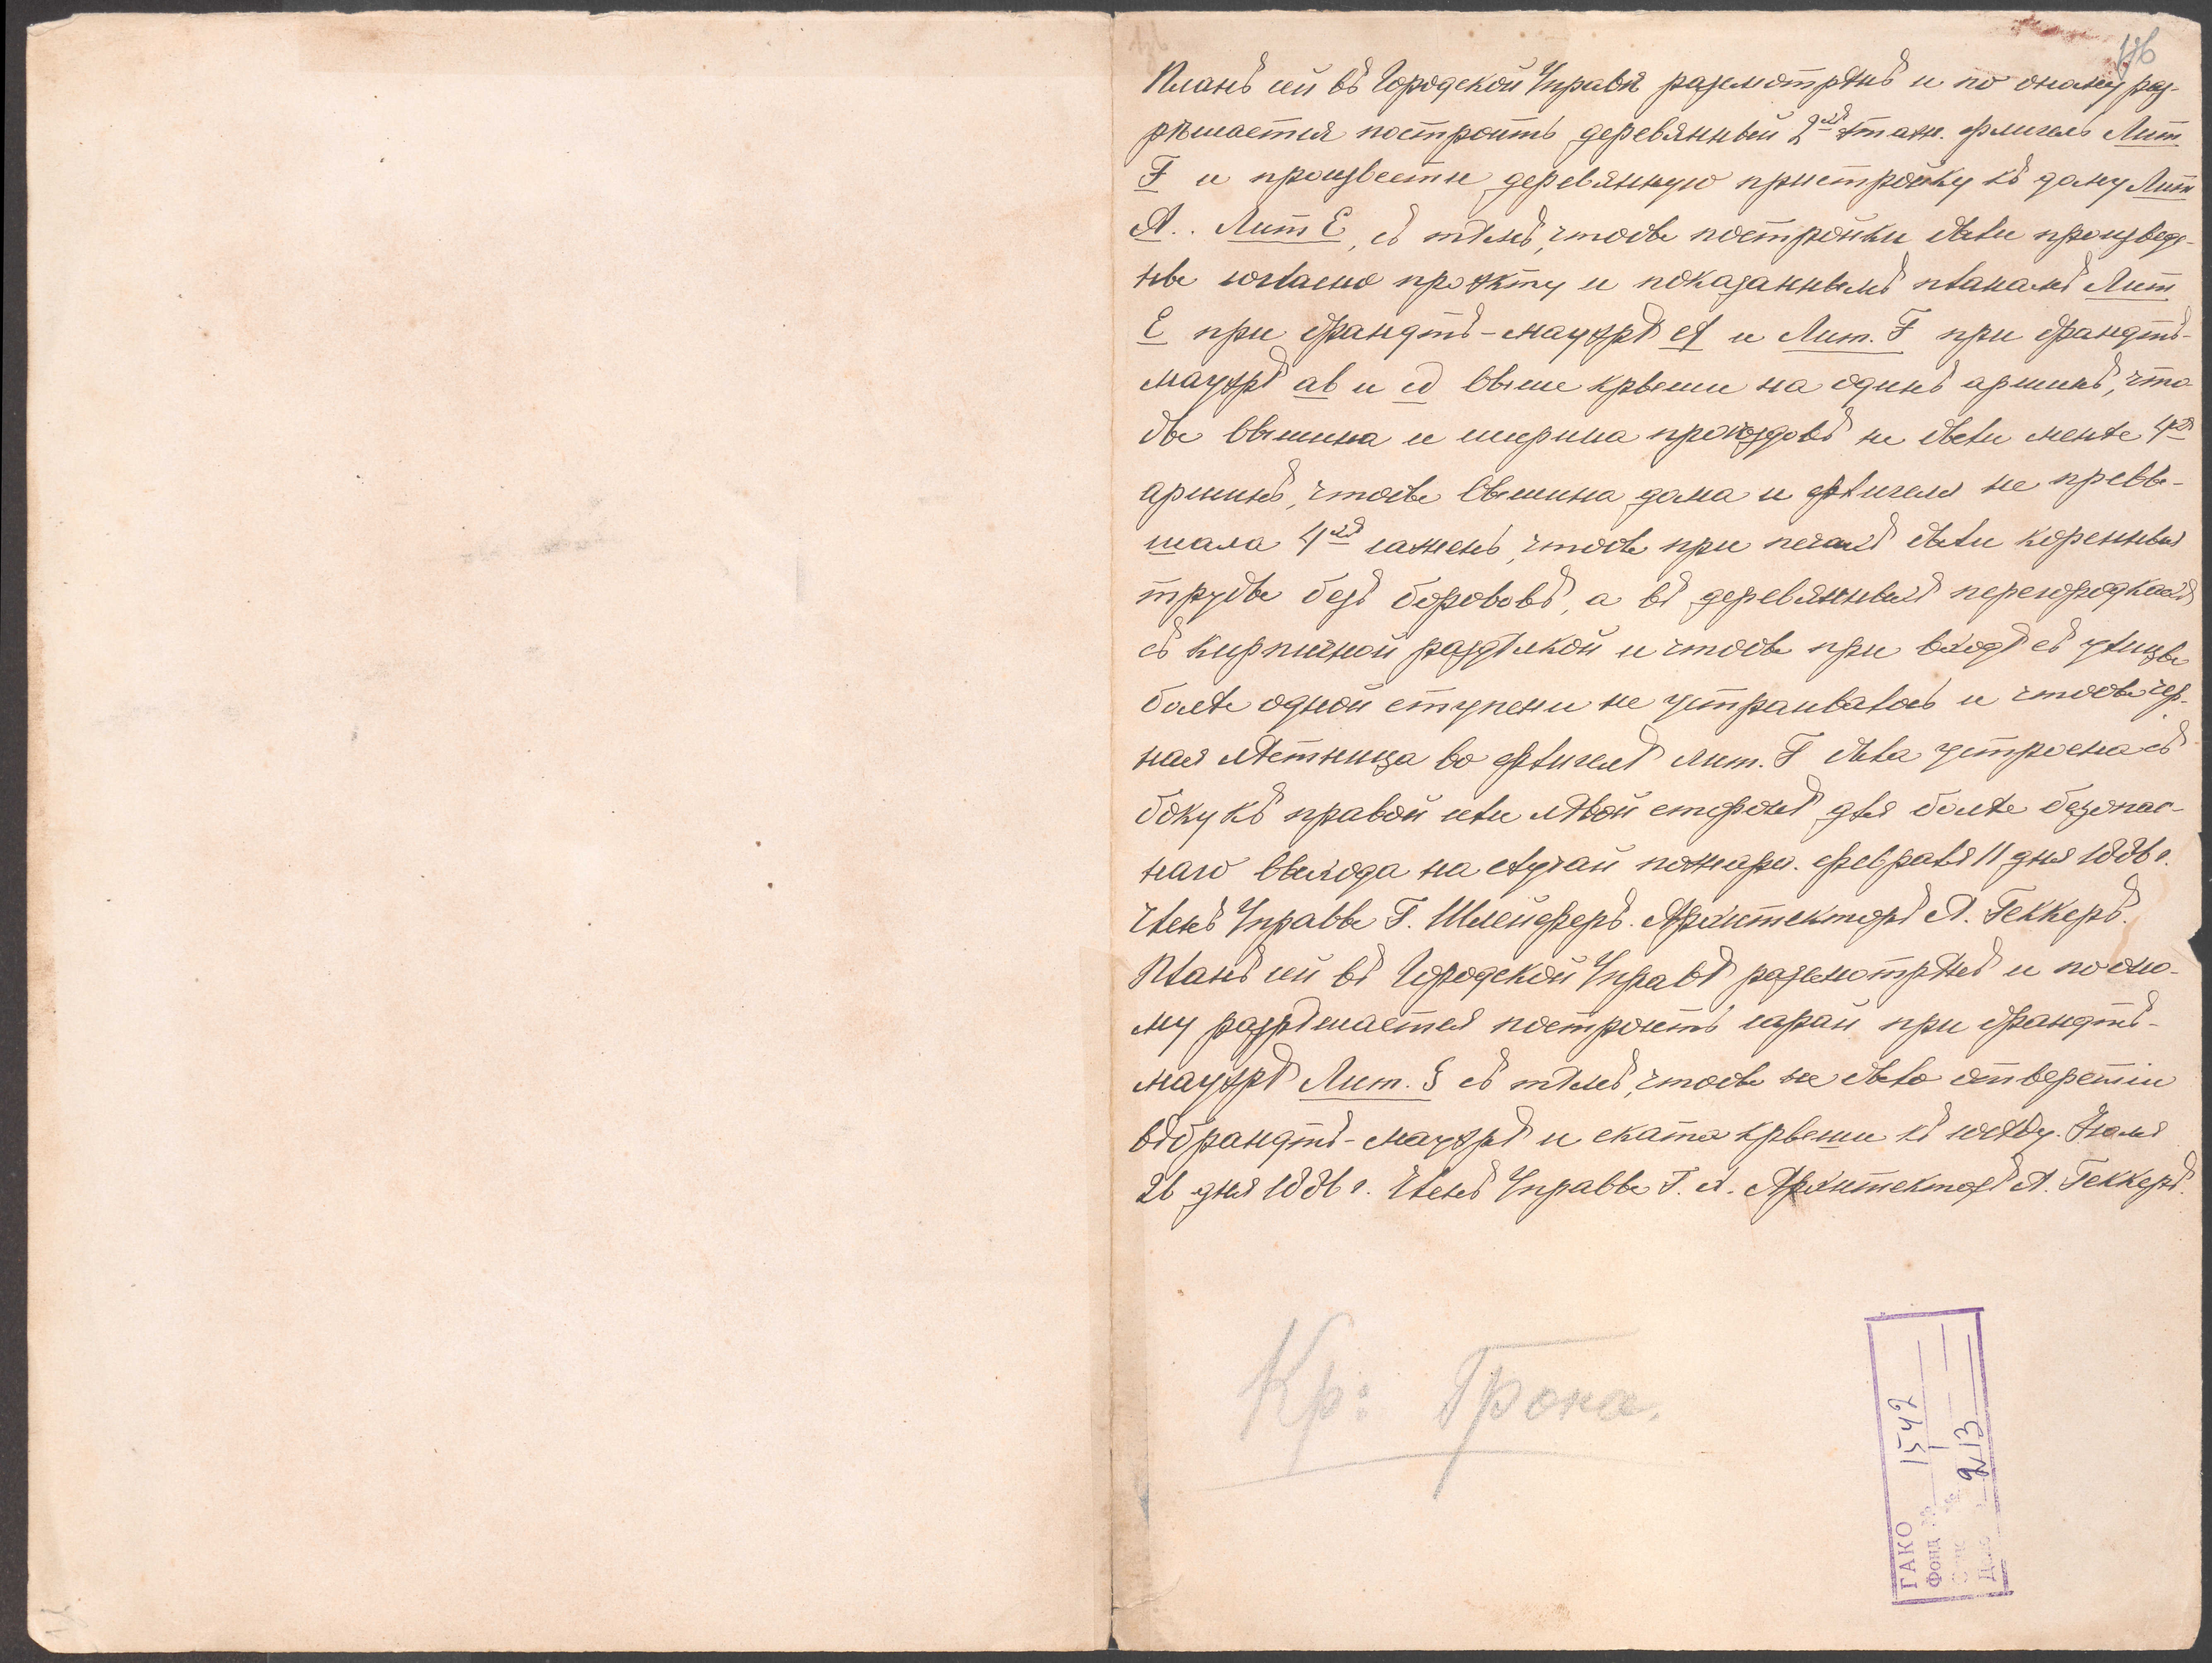 176
Планъ сей въ Городской Управѣ разсмотрѣнъ и по оному раз-
рѣшается построить деревянный 2хъ этаж. флигель Лит.
F и произвести деревянную пристройку къ дому Лит
А. Лит Е, съ тѣмъ, чтобы постройки были произведе-
ны согласно проэкту и показаннымъ планамъ Лит.
Е при брандтъ-мауэрѣ ef и Лит. F при брандтъ-
мауэрѣ ab и cd выше крыши на одинъ аршинъ, что
бы вышина и ширина проѣздовъ не были менѣе 4хъ
аршинъ, чтобы вышина дома и флигеля не превы-
шала 4хъ сажень, чтобы при печахъ были коренныя
трубы безъ борововъ, а въ деревянныхъ перегородкахъ
съ кирпичной раздѣлкой и чтобы при входѣ съ улицы
болѣе одной ступени не устраивалось и чтобы чер-
ная лѣстница во флигелѣ лит. F была устроена съ
боку къ правой или лѣвой сторонѣ для болѣе безопас-
наго выхода на случай пожара. Февраля 11 дня 1886 г.
Членъ Управы Г. Шлейферъ. Архитекторъ А. Геккеръ.
Планъ сей въ Городской Управѣ разсмотрѣнъ и по оно-
му разрѣшается построить сарай при брандтъ-
мауэрѣ Лит. G съ тѣмъ, чтобы не было отверстіи
въ брандтъ-мауэрѣ и ската крыши къ сосѣду. Іюля
26 дня 1886 г. Членъ Управы Г. А. Архитекторъ А. Геккеръ.
Кр: Грона.
ГАКО
Фонд № 1542
Опис № 1
Дело 213